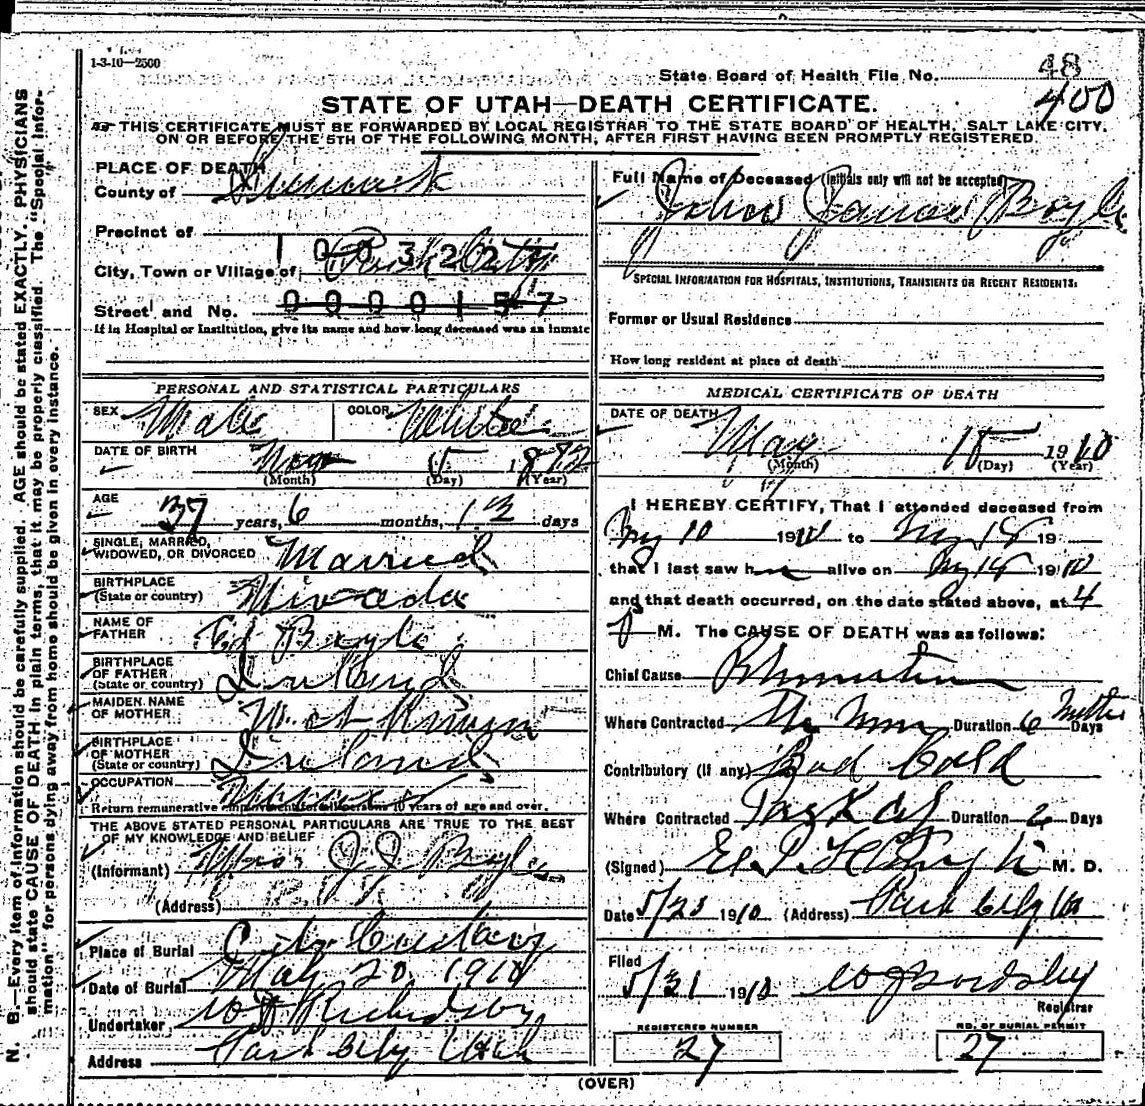 1-3-10—2500
State Board of Health File No. 48
400
STATE OF UTAH—DEATH CERTIFICATE.
THIS CERTIFICATE MUST BE FORWARDED BY LOCAL REGISTRAR TO THE STATE BOARD OF HEALTH, SALT LAKE CITY,
ON OR BEFORE THE 5TH OF THE FOLLOWING MONTH, AFTER FIRST HAVING BEEN PROMPTLY REGISTERED.
N. B.—Every item of information should be carefully supplied. AGE should be stated EXACTLY. PHYSICIANS
should state CAUSE OF DEATH in plain terms, that it may be properly classified. The "Special Infor-
mation" for persons dying away from home should be given in every instance.
PLACE OF DEATH
County of Summit
Precinct of
1003227
City, Town or Village of Park City
Street and No. 0000157
If in Hospital or Institution, give its name and how long deceased was an inmate
PERSONAL AND STATISTICAL PARTICULARS
SEX Male COLOR White
DATE OF BIRTH 5 1872
(Month) (Day) (Year)
AGE
37 years, 6 months, 13 days
SINGLE, MARRIED,
WIDOWED, OR DIVORCED Married
BIRTHPLACE
(State or country) Nivada
NAME OF
FATHER Ed Boyle
BIRTHPLACE
OF FATHER
(State or country) Ireland
MAIDEN NAME
OF MOTHER Not Known
BIRTHPLACE
OF MOTHER
(State or country) Ireland
OCCUPATION Miner
Return remunerative employment for all persons 10 years of age and over.
THE ABOVE STATED PERSONAL PARTICULARS ARE TRUE TO THE BEST
OF MY KNOWLEDGE AND BELIEF
(Informant) Mrs J J Boyle
(Address)
Place of Burial City Cemetery
Date of Burial May 20 1910
Undertaker
Address Park City Utah
Full Name of Deceased (Initials only will not be accepted)
John James Boyle
SPECIAL INFORMATION FOR HOSPITALS, INSTITUTIONS, TRANSIENTS OR RECENT RESIDENTS:
Former or Usual Residence
How long resident at place of death
MEDICAL CERTIFICATE OF DEATH
DATE OF DEATH
May 18 1910
(Month) (Day) (Year)
I HEREBY CERTIFY, That I attended deceased from
My 10 1910 to My 18 19
that I last saw him alive on My 18 1910
and that death occurred, on the date stated above, at 4
P M. The CAUSE OF DEATH was as follows:
Chief Cause
Where Contracted Duration 6 Days
Contributory (If any) Bad Cold
Where Contracted Duration 2 Days
(Signed) M. D.
Date 5/23 1910 (Address) Park City Ut
Filed
5/31 1910
Registrar
REGISTERED NUMBER
27
NO. OF BURIAL PERMIT
27
(OVER)